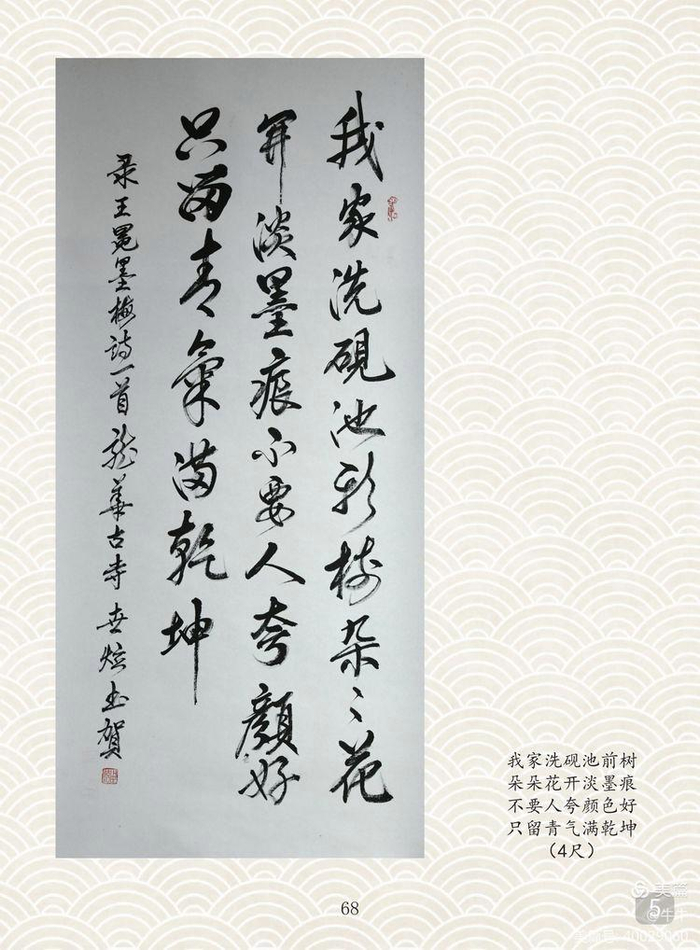 我家洗硯池树朵々花
開淡墨痕不要人夸顏好
只留青氣满乾坤
录王冕墨梅诗一首 龙華古寺 世炫书贺
我家洗砚池前树
朵朵花开淡墨痕
不要人夸颜色好
只留青气满乾坤
（4尺）
68
美篇
5
@牛牛